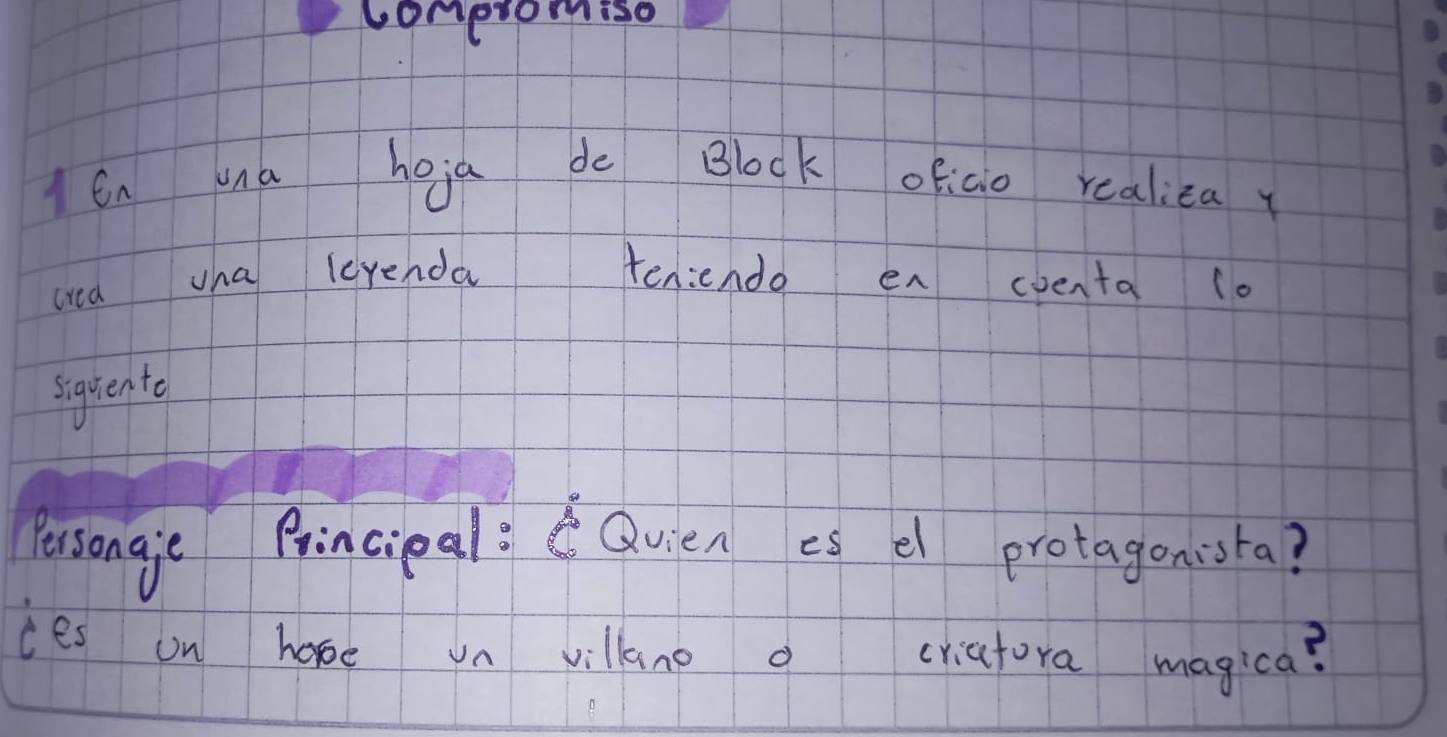 Compromiso
1 En una hoja de Block oficio realiza y
crea una leyenda teniendo en cuenta lo
siguiente
Personaje Principal: ¿Quien es el protagonista?
¿es un heroe un villano o criatura magica?